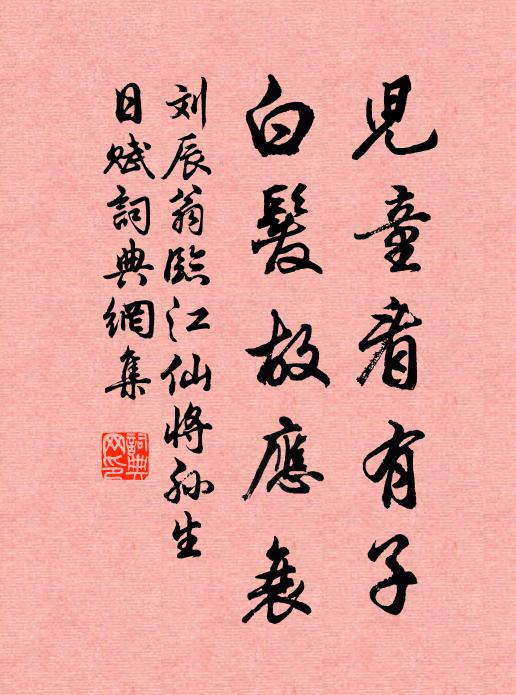 児童看有子
白髮故應衰
刘辰翁臨江仙将孙生
日赋詞典網集
詞典網印